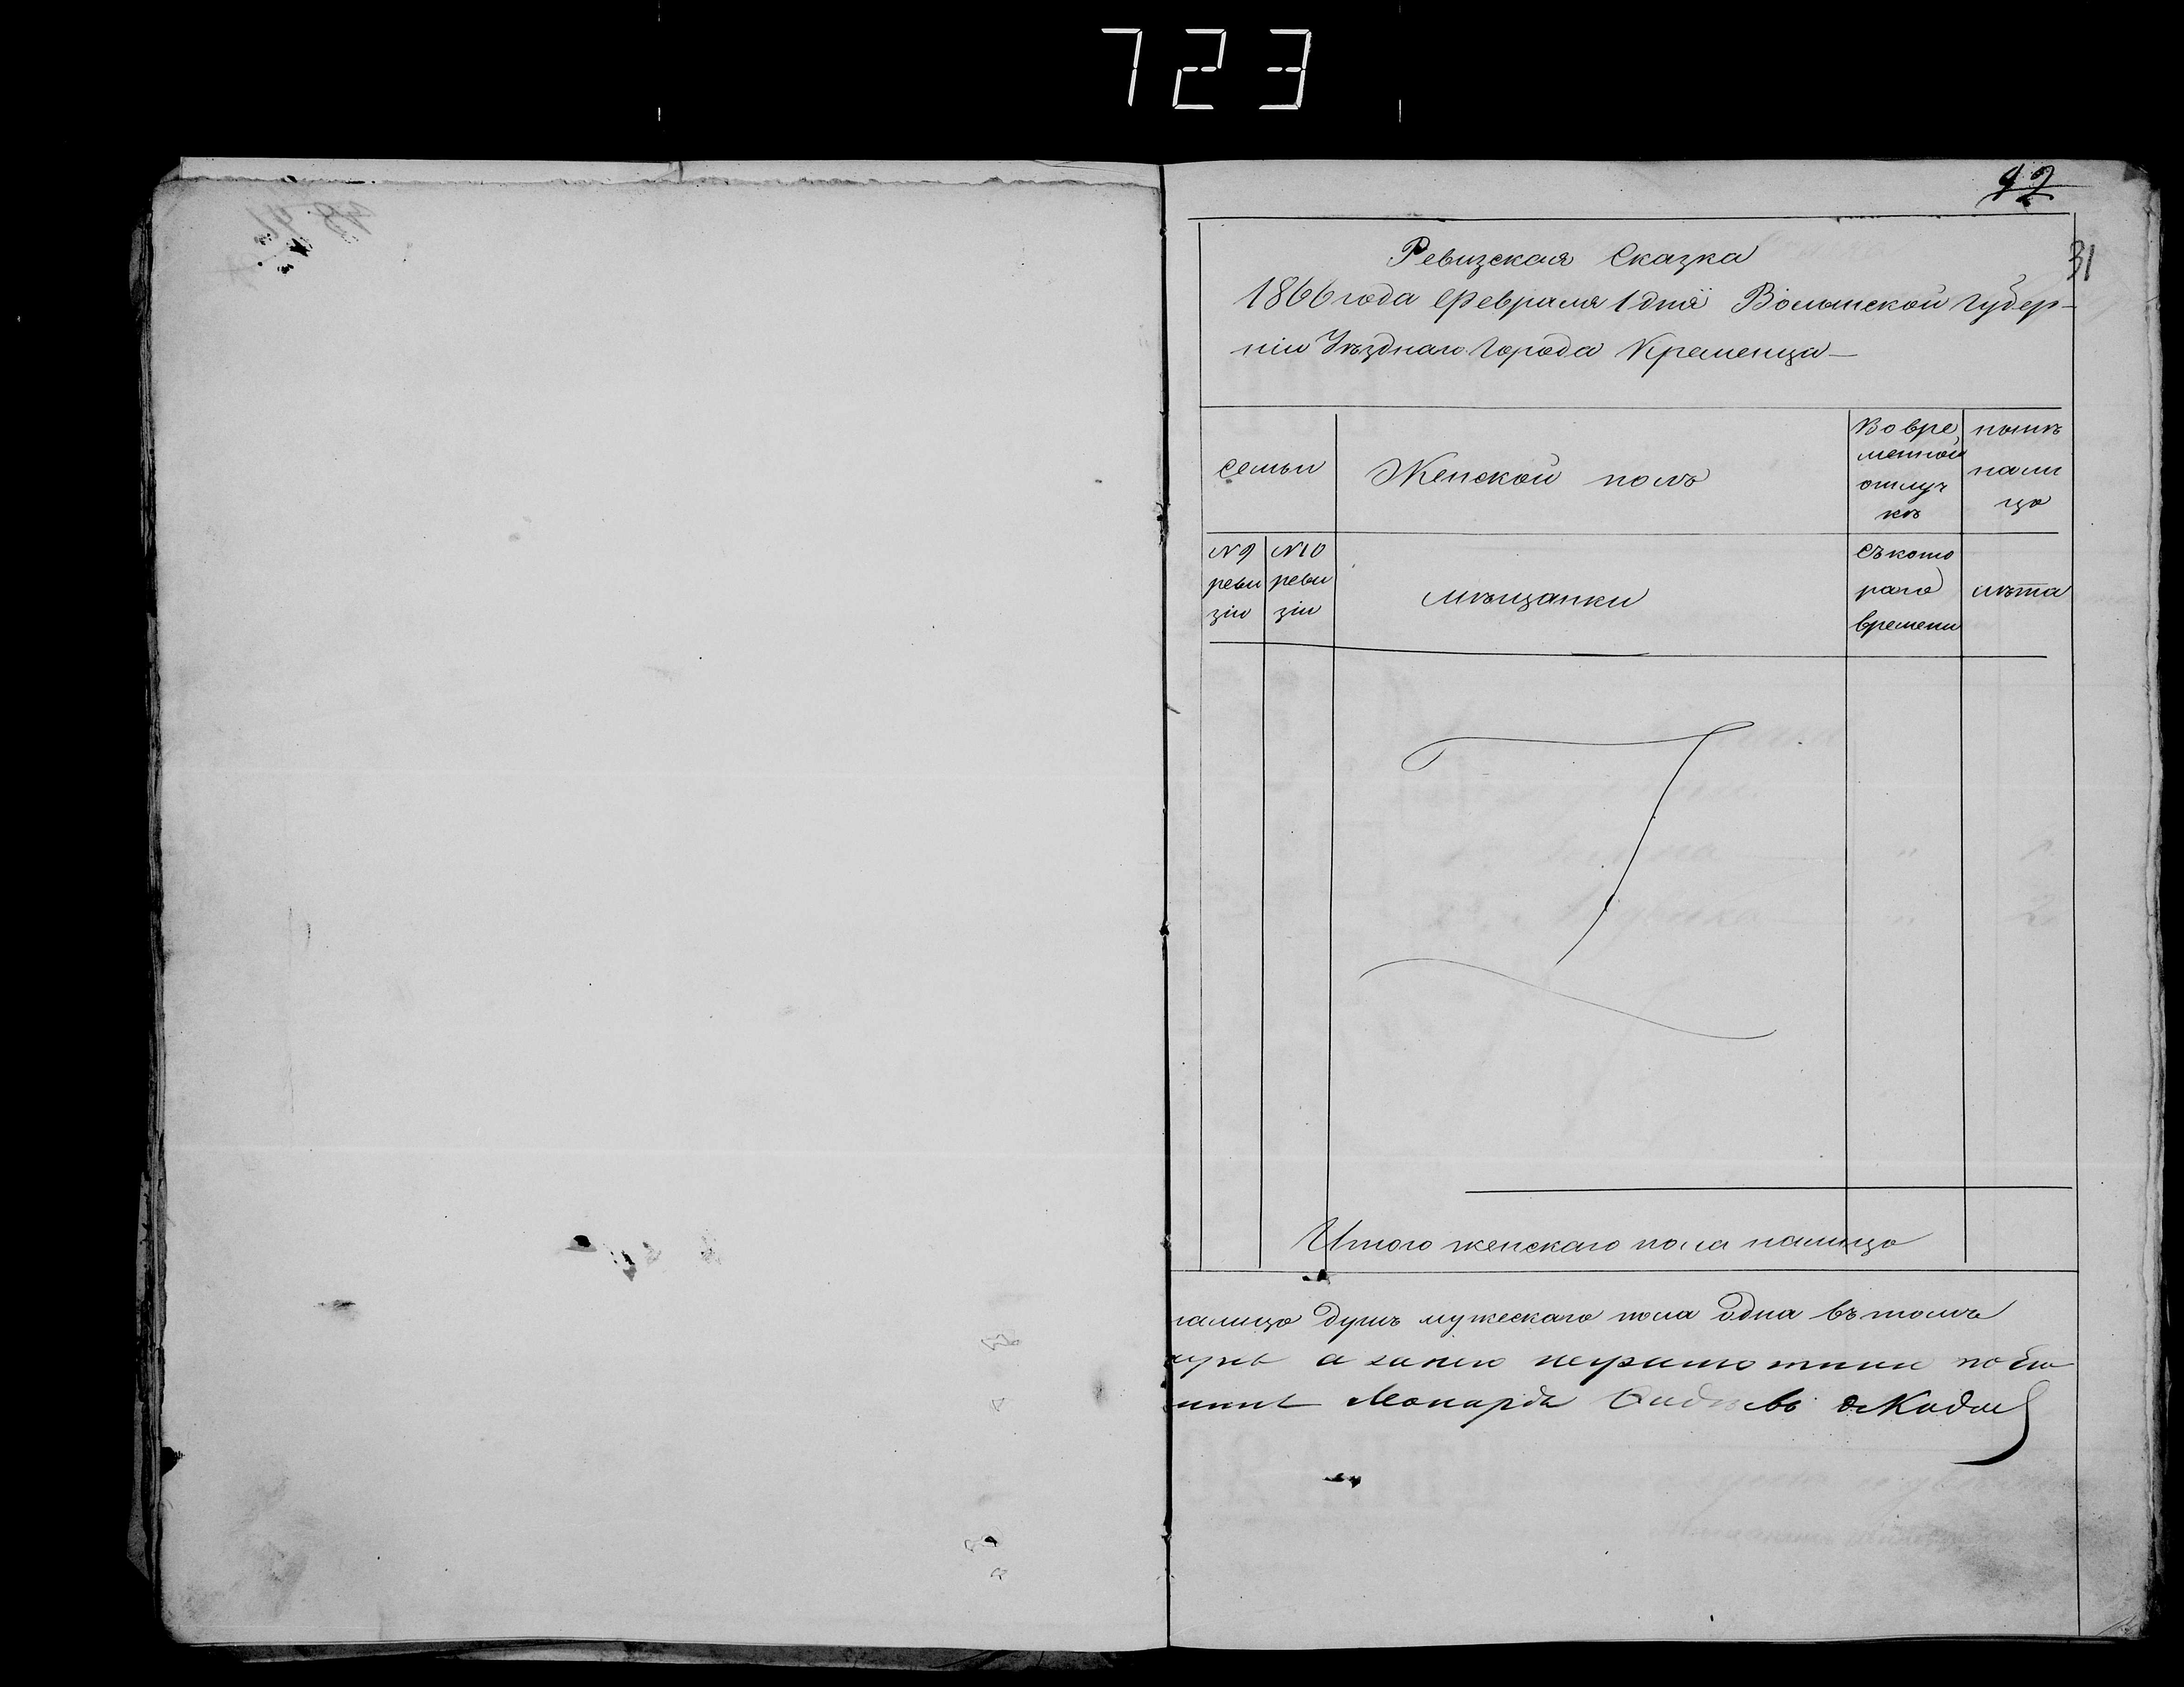 723
42
31
Ревизская Сказка
1866 года Февраля 1 дня Волынской Губер-
ніи Уѣзднаго Города Кременца
семьи
Женской полъ
Во вре
менной
отлуч
кѣ
нынѣ
нали
цо
N 9
реви
зіи
N 10
реви
зіи
мѣщанки
Съ кото
раго
времени
лѣта
Итого женскаго пола налицо
налицо душъ мужескаго пола одна въ томъ
а за него неграмотнии по Его